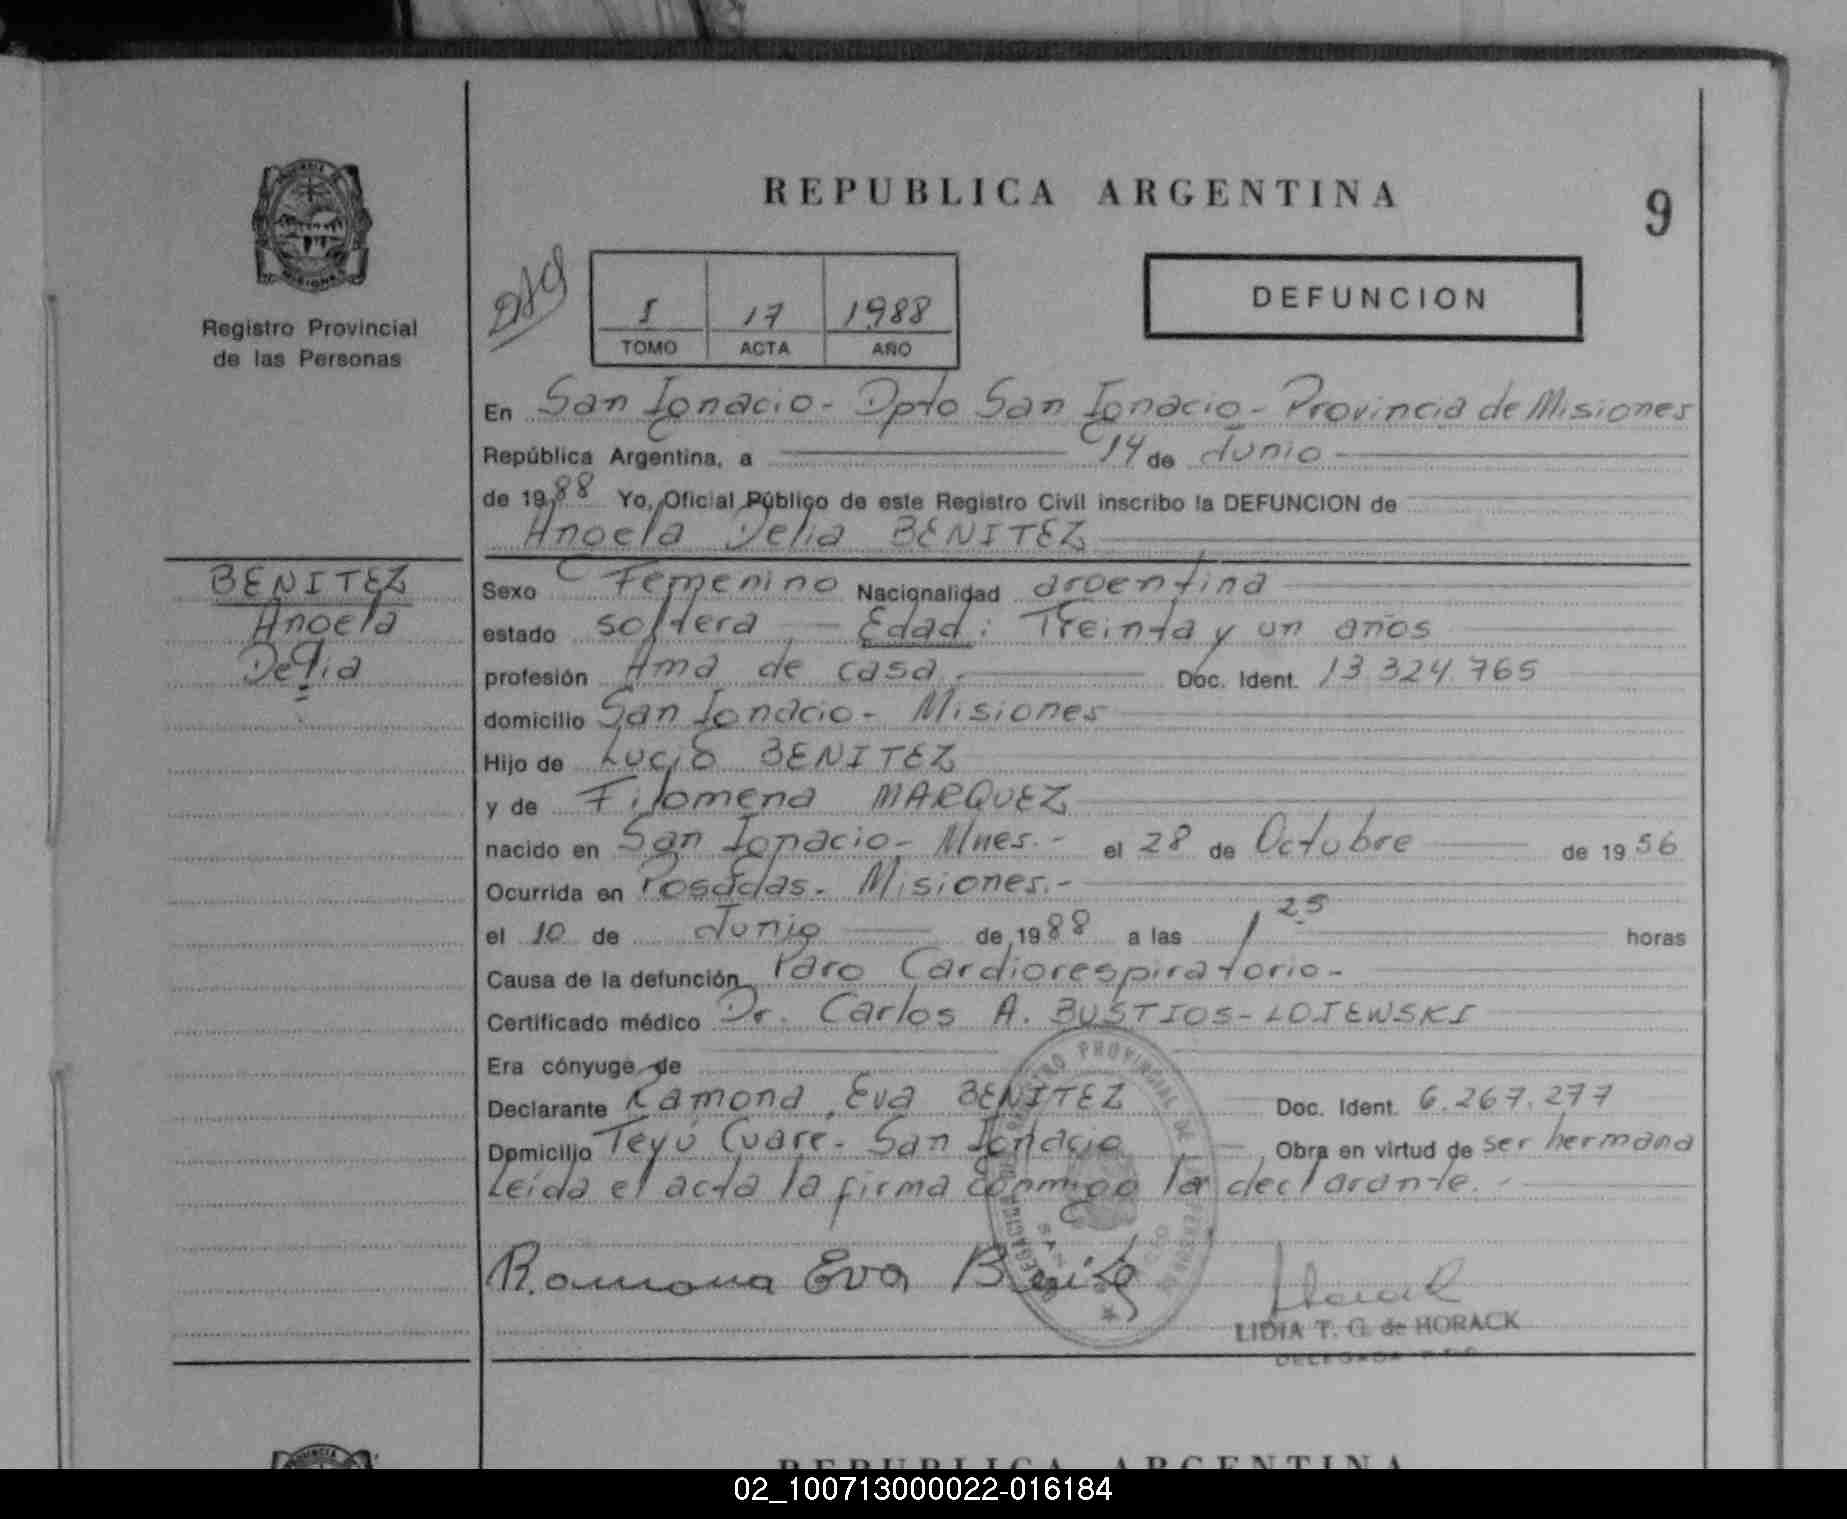 REPUBLICA ARGENTINA
9
Registro Provincial
de las Personas
I 17 1988
TOMO ACTA AÑO
DEFUNCION
En San Ignacio - Dpto San Ignacio - Provincia de Misiones
República Argentina, a 14 de Junio
de 1988 Yo, Oficial Público de este Registro Civil inscribo la DEFUNCION de
Angela Delia BENITEZ
BENITEZ
Angela
Delia
Sexo Femenino Nacionalidad argentina
estado soltera - Edad: Treinta y un años
profesión Ama de casa. Doc. Ident. 13 324.765
domicilio San Ignacio - Misiones
Hijo de Lucio BENITEZ
y de Filomena MARQUEZ
nacido en San Ignacio - Mnes. - el 28 de Octubre de 1956
Ocurrida en Posadas. Misiones. -
el 10 de Junio de 1988 a las 1 25 horas
Causa de la defunción Paro Cardiorespiratorio -
Certificado médico Dr. Carlos A. BUSTIOS - LOJEWSKI
Era cónyuge de
Declarante Ramona Eva BENITEZ Doc. Ident. 6.267.277
Domicilio Teyú Cuaré - San Ignacio Obra en virtud de ser hermana
Leída el acta la firma conmigo la declarante. -
Ramona Eva Benitez
REGISTRO PROVINCIAL DE LAS PERSONAS
LIDIA T. G. de HORACK
DELEGADA
REPUBLICA ARGENTINA
02_100713000022-016184